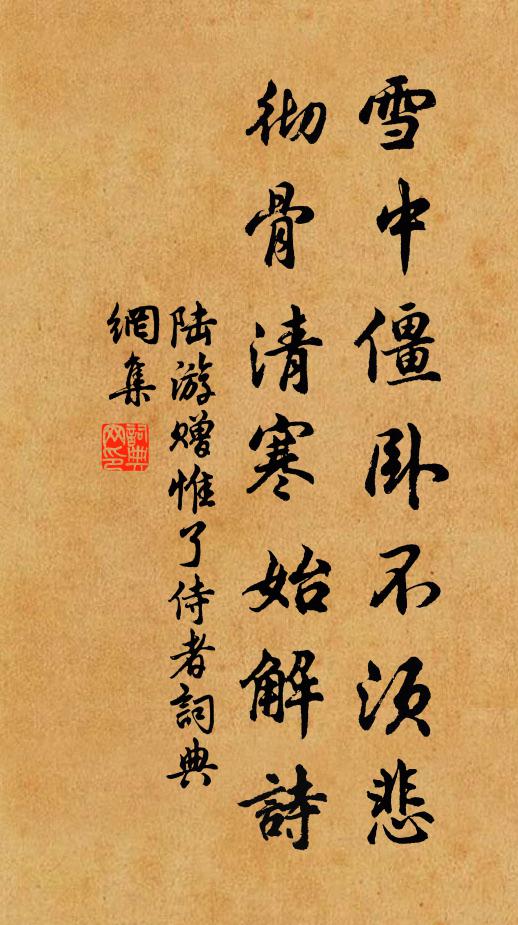 雪中僵卧不須悲
彻骨清寒始解詩
陆游赠惟了侍者詞典
網集
詞典
网印